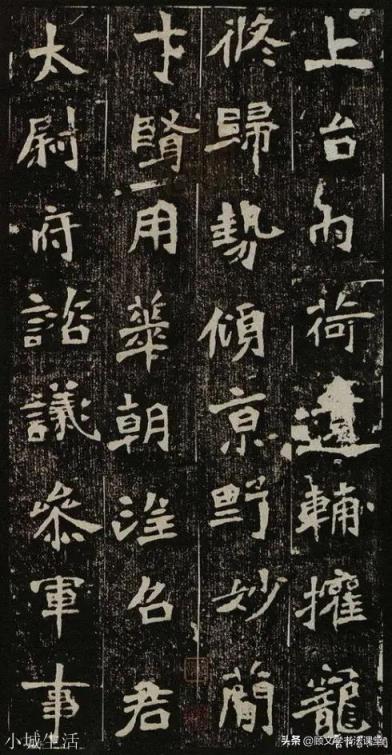 上台內荷輔攉寵
脩歸勢傾京野妙簡
才賢用華朝注召君
太尉府諮議參軍事
小城生活
头条 @顾文学书法课堂